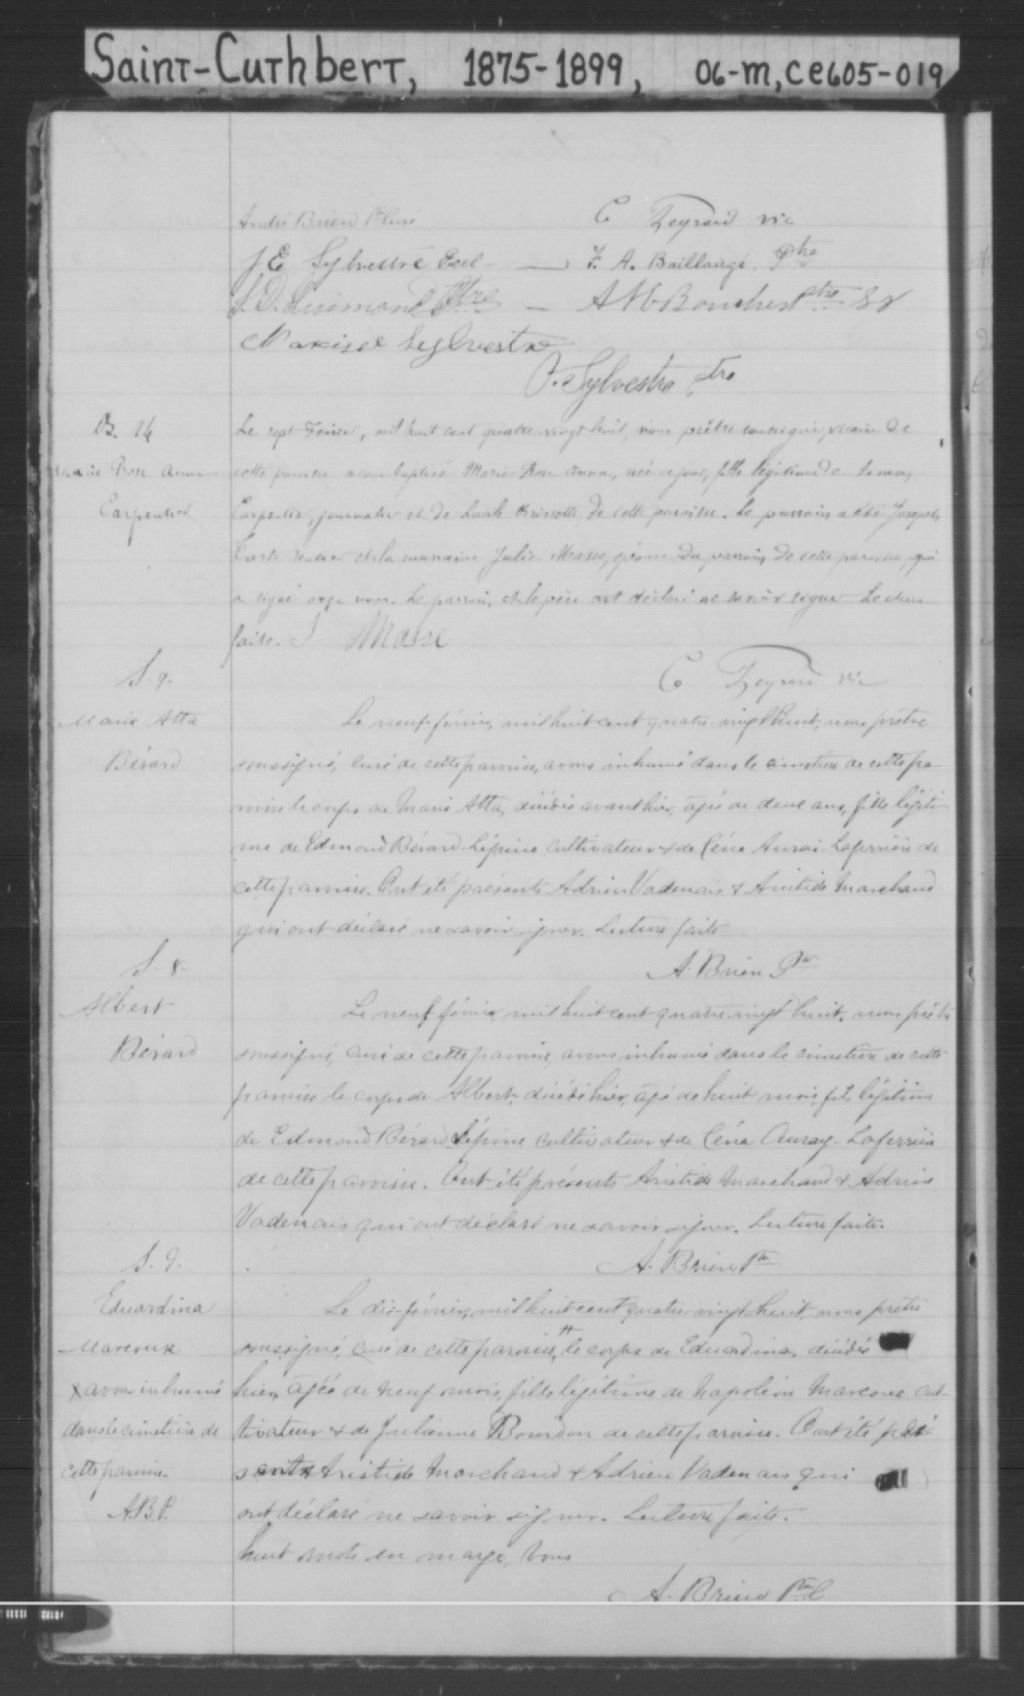 Saint-Cuthbert, 1875-1899, 06-m, CE605-019
André Brien Ptre Curé
C Fegrand vic
J E Sylvestre Eccl
F. A. Baillairgé Ptre
Ptre
Ptre
Sylvestre
Sylvestre Ptre
B. 16
Le sept Février, mil huit cent quatre vingt huit, nous prêtre soussigné, vicaire de
Rose Anna
cette paroisse avons baptisé Marie Rose Anna, née ce jour, fille légitime de
Carpentier
Carpentier, journalier et de Brissette de cette paroisse. Le parrain a été Joseph
et la marraine Julie Masse, épouse du parrain, de cette paroisse, qui
a signé avec nous. Le parrain et le père ont déclaré ne savoir signer. Lecture
faite. J Masse
C Fegrand vic
S. 7.
Marie Atta
Le neuf février, mil huit cent quatre-vingt huit, nous prêtre
Bérard
soussigné, curé de cette paroisse, avons inhumé dans le cimetière de cette pa-
roisse le corps de Marie Atta, décédée avant hier, âgée de deux ans, fille légiti-
me de Edmond Bérard-Lépine cultivateur & de Céna Auray-Laferrière de
cette paroisse. Ont été présents Adrien Vadenais & Aristide Marchand
qui ont déclaré ne savoir signer. Lecture faite
A. Brien Ptre
S. 8.
Albert
Le neuf février mil huit cent quatre-vingt huit, nous prêtre
Bérard
soussigné, curé de cette paroisse, avons inhumé dans le cimetière de cette
paroisse le corps de Albert, décédé hier, âgé de huit mois, fils légitime
de Edmond Bérard Lépine cultivateur & de Céna Auray-Laferrière
de cette paroisse. Ont été présents Aristide Marchand & Adrien
Vadenais qui ont déclaré ne savoir signer. Lecture faite.
A. Brien Ptre
S. 9.
Eduardina
Le dix février, mil huit cent quatre-vingt-huit, nous prêtre
Marcoux
soussigné, curé de cette paroisse, le corps de Eduardina, décédée
x avons inhumé
hier, âgée de neuf mois, fille légitime de Napoléon Marcoux cul-
dans le cimetière de
tivateur & de Julienne Bourdon de cette paroisse. Ont été pré-
cette paroisse.
sents Aristide Marchand & Adrien Vadenais qui
A.B.P.
ont déclaré ne savoir signer. Lecture faite.
huit mots en marge, bons
A. Brien Ptre C